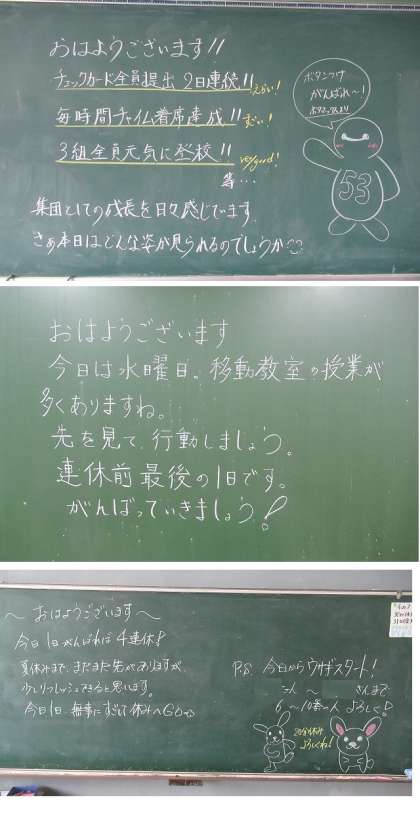 おはようございます!!
チェックカード全員提出 2日連続!! えらい!
毎時間チャイム着席達成!! すごい!
3組全員元気に登校!! very good!
等…
集団としての成長を日々感じています
さあ本日はどんな姿が見られるのでしょうか
ボタンつけ
がんばれ〜!
53
おはようございます
今日は水曜日。移動教室の授業が
多くありますね。
先を見て、行動しましょう。
連休前最後の1日です。
がんばっていきましょう!
〜おはようございます〜
今日1日がんばれば4連休!
夏休みまで、まだまだ先がありますが、
少しリフレッシュできると思います。
今日1日、無事にすごして休みへGO
P.S. 今日からウサギスタート!
さん 〜 さんまで
6〜10番の人 よろしく!
20分休み
よろしくね!